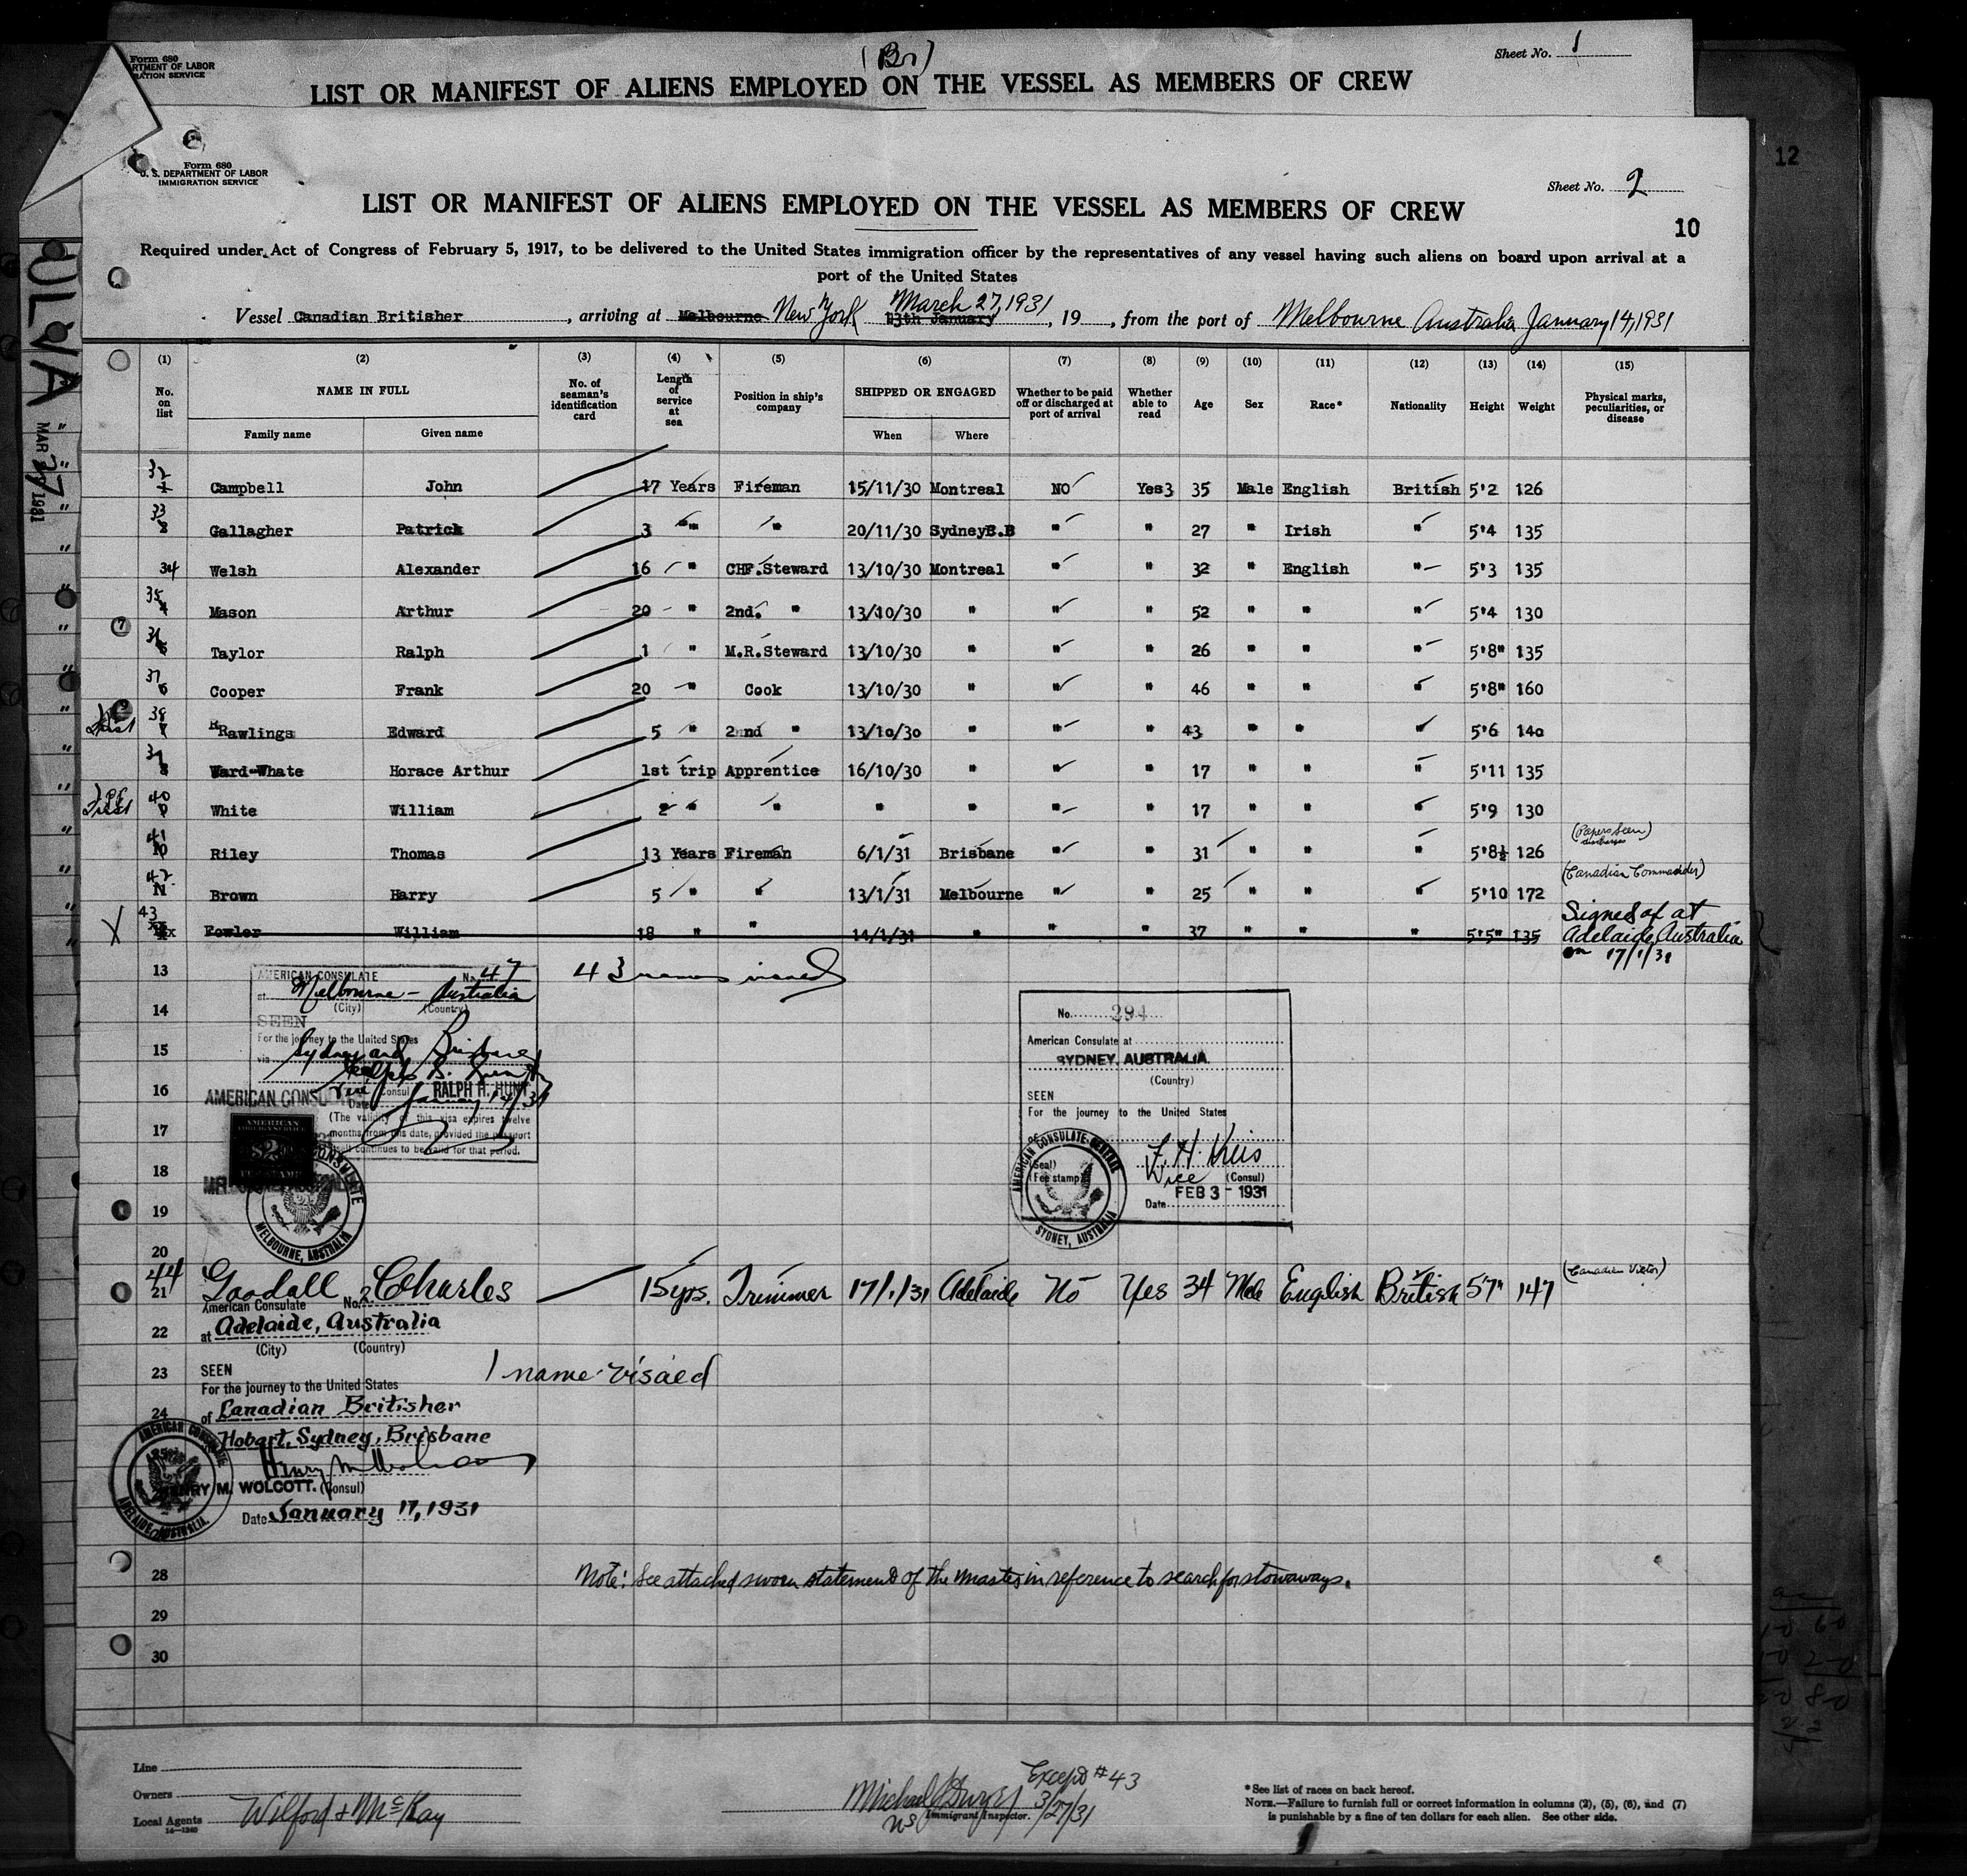 Form 680
DEPARTMENT OF LABOR
IMMIGRATION SERVICE
(Br)
Sheet No. 1
LIST OR MANIFEST OF ALIENS EMPLOYED ON THE VESSEL AS MEMBERS OF CREW
12
Form 680
U. S. DEPARTMENT OF LABOR
IMMIGRATION SERVICE
Sheet No. 2
LIST OR MANIFEST OF ALIENS EMPLOYED ON THE VESSEL AS MEMBERS OF CREW
10
Required under Act of Congress of February 5, 1917, to be delivered to the United States immigration officer by the representatives of any vessel having such aliens on board upon arrival at a
port of the United States
Vessel Canadian Britisher, arriving at Melbourne New York 13th January March 27, 1931, 19, from the port of Melbourne Australia January 14, 1931
(1) (2) (3) (4) (5) (6) (7) (8) (9) (10) (11) (12) (13) (14) (15)
No. on list NAME IN FULL No. of seaman's identification card Length of service at sea Position in ship's company SHIPPED OR ENGAGED Whether to be paid off or discharged at port of arrival Whether able to read Age Sex Race* Nationality Height Weight Physical marks, peculiarities, or disease
Family name Given name When Where
32 1 Campbell John 17 Years Fireman 15/11/30 Montreal NO Yes 35 Male English British 5'2 126
33 2 Gallagher Patrick 3 " " 20/11/30 Sydney " " 27 " Irish " 5'4 135
34 Welsh Alexander 16 " CHF.Steward 13/10/30 Montreal " " 32 " English " 5'3 135
35 4 Mason Arthur 20 " 2nd. " 13/10/30 " " " 52 " " " 5'4 130
36 5 Taylor Ralph 1 " M.R.Steward 13/10/30 " " " 26 " " " 5'8" 135
37 6 Cooper Frank 20 " Cook 13/10/30 " " " 46 " " " 5'8" 160
38 7 Rawlings Edward 5 " 2nd " 13/10/30 " " " 43 " " " 5'6 140
39 8 Ward-Whate Horace Arthur 1st trip Apprentice 16/10/30 " " " 17 " " " 5'11 135
40 9 White William 2 " " " " " " 17 " " " 5'9 130
41 10 Riley Thomas 13 Years Fireman 6/1/31 Brisbane " " 31 " " " 5'8½ 126 (Papers seen) discharges
42 11 Brown Harry 5 " " 13/1/31 Melbourne " " 25 " " " 5'10 172 (Canadian Commander)
X 43 Fowler William 18 " " 14/1/31 " " " 37 " " " 5'5" 135 Signed of at
Adelaide, Australia
on 17/1/31
13
14
15
16
17
18
19
20
AMERICAN CONSULATE No. 47
at Melbourne - Australia
(City) (Country)
SEEN
For the journey to the United States
via Sydney and Brisbane
Vice Consul RALPH H. HUNT
AMERICAN CONSULATE
Date January 14/31
(The validity of this visa expires twelve
months from this date, provided the passport
continues to be valid for that period.
AMERICAN
FOREIGN SERVICE
$2.00
FEE STAMP
MELBOURNE, AUSTRALIA
MELBOURNE, AUSTRALIA
43 names visaed
No. 294
American Consulate at
SYDNEY, AUSTRALIA
(Country)
SEEN
For the journey to the United States
(Seal)
(Fee stamp)
Vice (Consul)
Date FEB 3 - 1931
AMERICAN CONSULATE GENERAL
SYDNEY, AUSTRALIA
44 21 Goodall Charles 15 yrs. Trimmer 17/1/31 Adelaide No Yes 34 Male English British 5'7" 147 (Canadian Victor)
American Consulate No. 2
22 at Adelaide, Australia
(City) (Country)
23 SEEN
1 name visaed
For the journey to the United States
24 of Canadian Britisher
Hobart, Sydney, Brisbane
HENRY M. WOLCOTT. (Consul)
Date January 17, 1931
AMERICAN CONSULATE
ADELAIDE, AUSTRALIA.
28 Note: See attached sworn statement of the master in reference to search for stowaways.
29
30
Line
Owners
Local Agents Wilford & McKay
14—1240
Michael Dwyer Except #43
US Immigrant Inspector. 3/27/31
*See list of races on back hereof.
NOTE.—Failure to furnish full or correct information in columns (2), (5), (6), and (7)
is punishable by a fine of ten dollars for each alien. See other side.